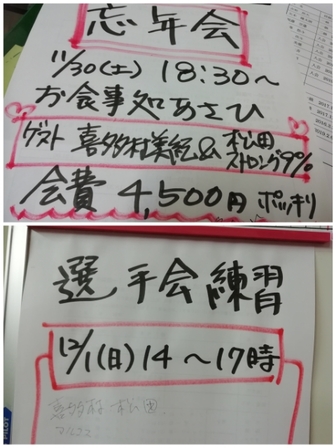 忘年会
11/30(土) 18:30〜
お食事処あさひ
ゲスト 喜多村美紀& 松田ストロング9%
会費 4,500円 ポッキリ
選手会練習
12/1(日)14〜17時
喜多村 松田
PILOT